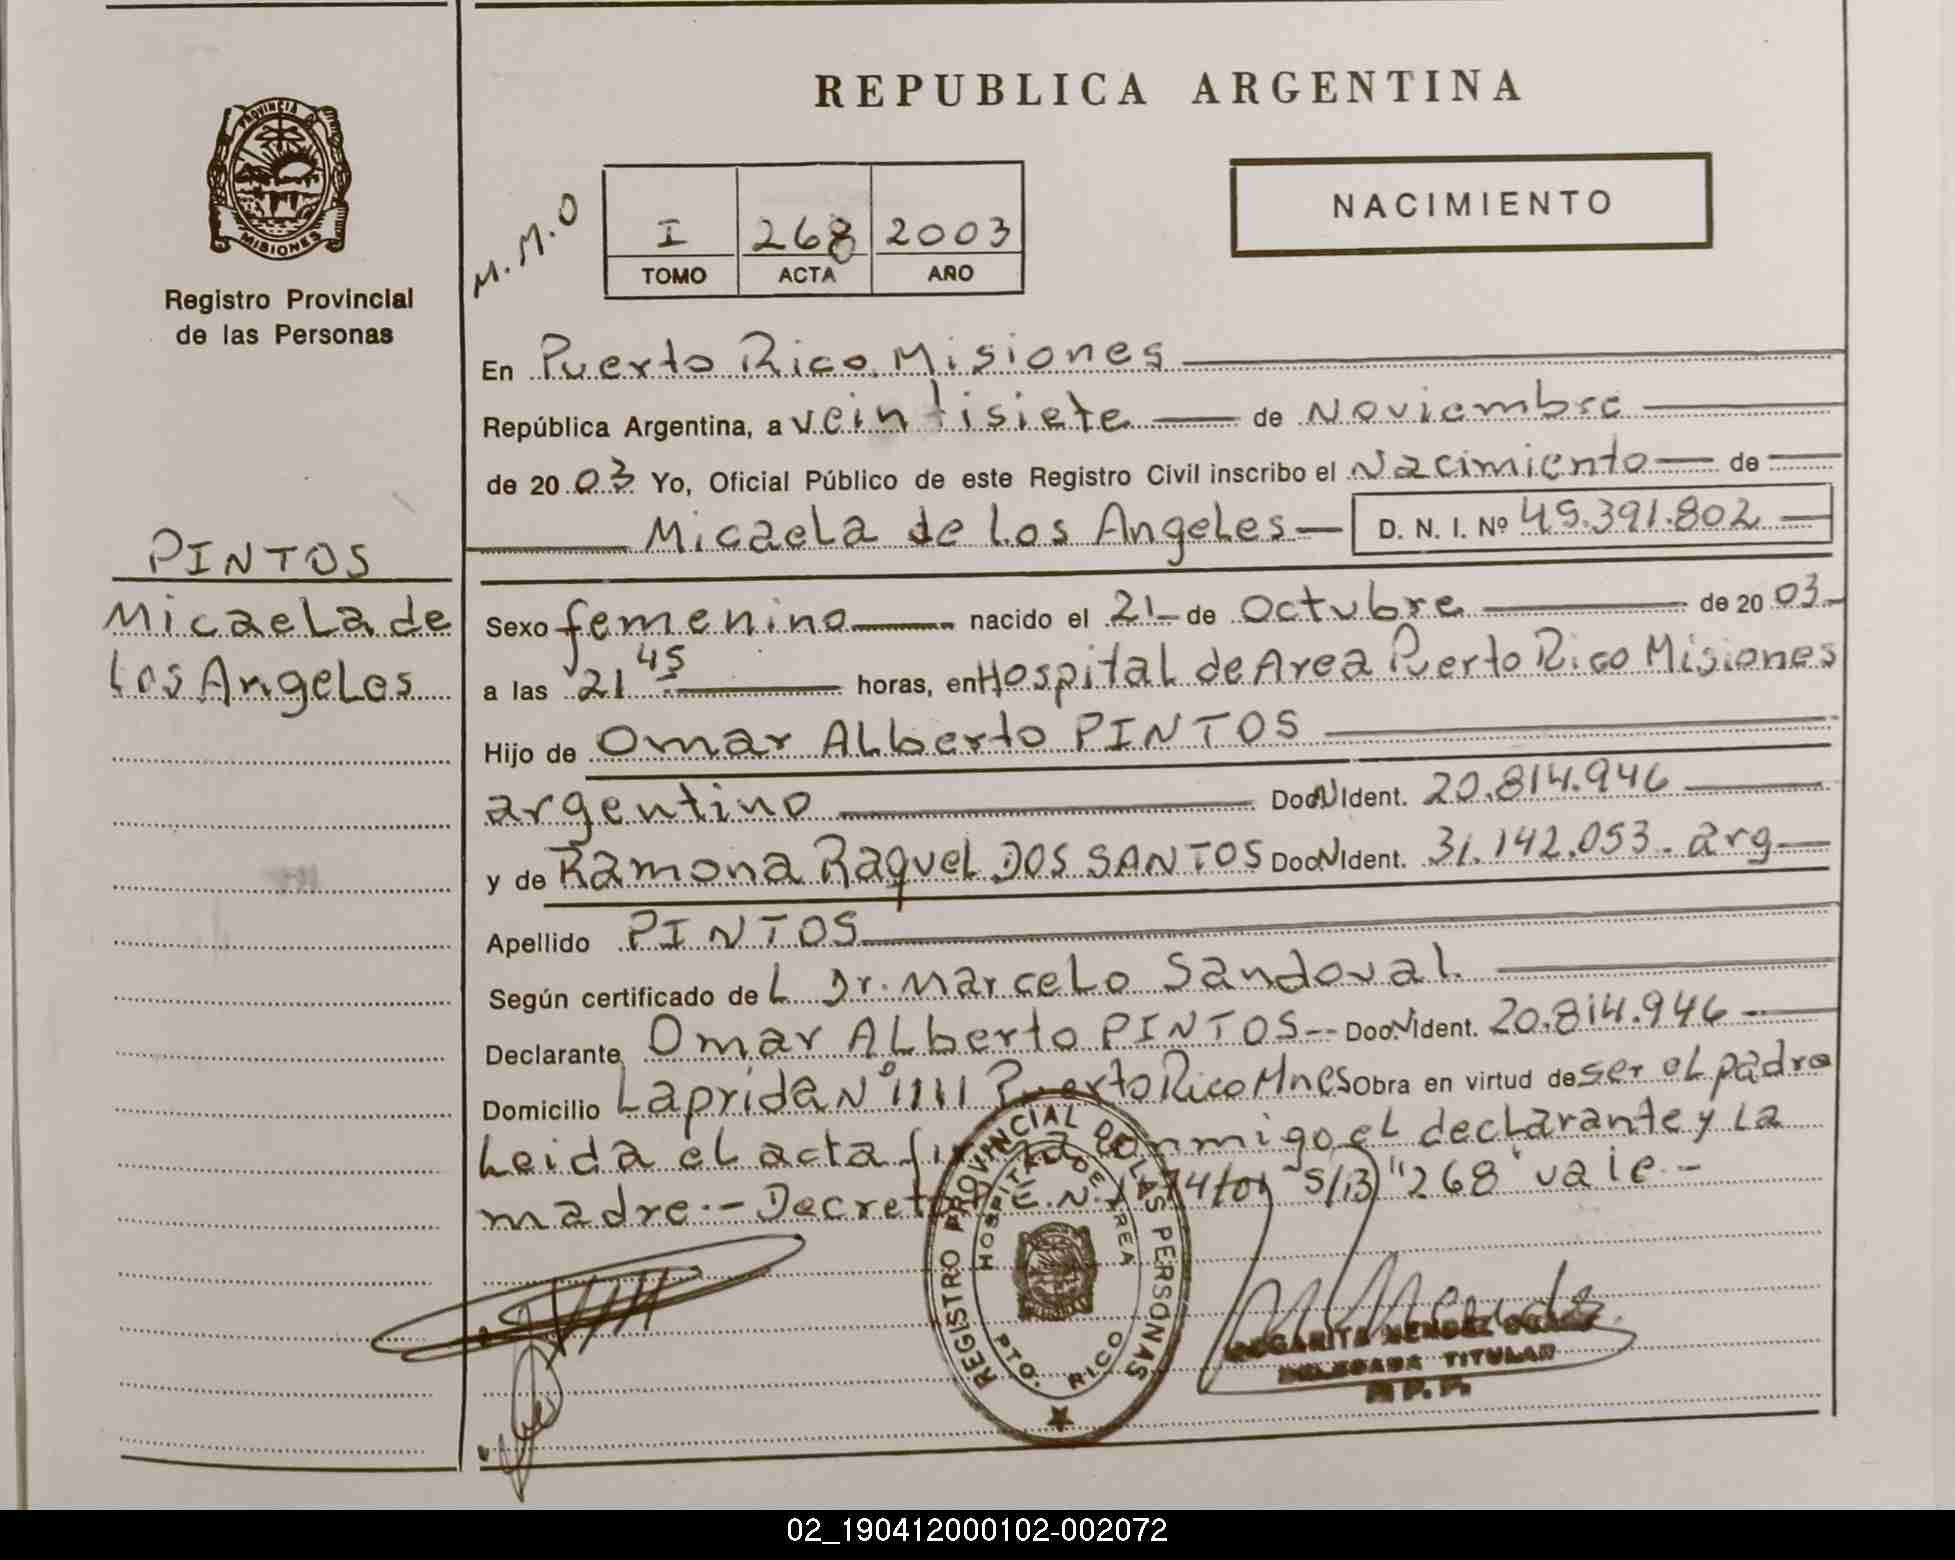 REPUBLICA ARGENTINA
PROVINCIA DE
MISIONES
Registro Provincial
de las Personas
M.M.O
I 268 2003
TOMO ACTA AÑO
NACIMIENTO
En Puerto Rico Misiones
República Argentina, a veintisiete de Noviembre
de 2003 Yo, Oficial Público de este Registro Civil inscribo el Nacimiento de
Micaela de Los Angeles D. N. I. Nº 45.391.802
PINTOS
Micaela de
Los Angeles
Sexo femenino nacido el 21 de Octubre de 2003
a las 21 45 horas, en Hospital de Area Puerto Rico Misiones
Hijo de Omar Alberto PINTOS
argentino Doc N Ident. 20.814.946
y de Ramona Raquel DOS SANTOS Doc N Ident. 31.142.053. arg
Apellido PINTOS
Según certificado de L Dr. Marcelo Sandoval
Declarante Omar Alberto PINTOS -- Doc N Ident. 20.814.946
Domicilio Laprida Nº 1111 Puerto Rico Mnes Obra en virtud de ser el padre
Leida el acta firma conmigo el declarante y la
madre.- Decreto E.N. S/B "268" vale.-
REGISTRO PROVINCIAL DE LAS PERSONAS
HOSPITAL DE AREA
PTO. RICO
MENDEZ
DELEGADA TITULAR
R.P.P.
02_190412000102-002072